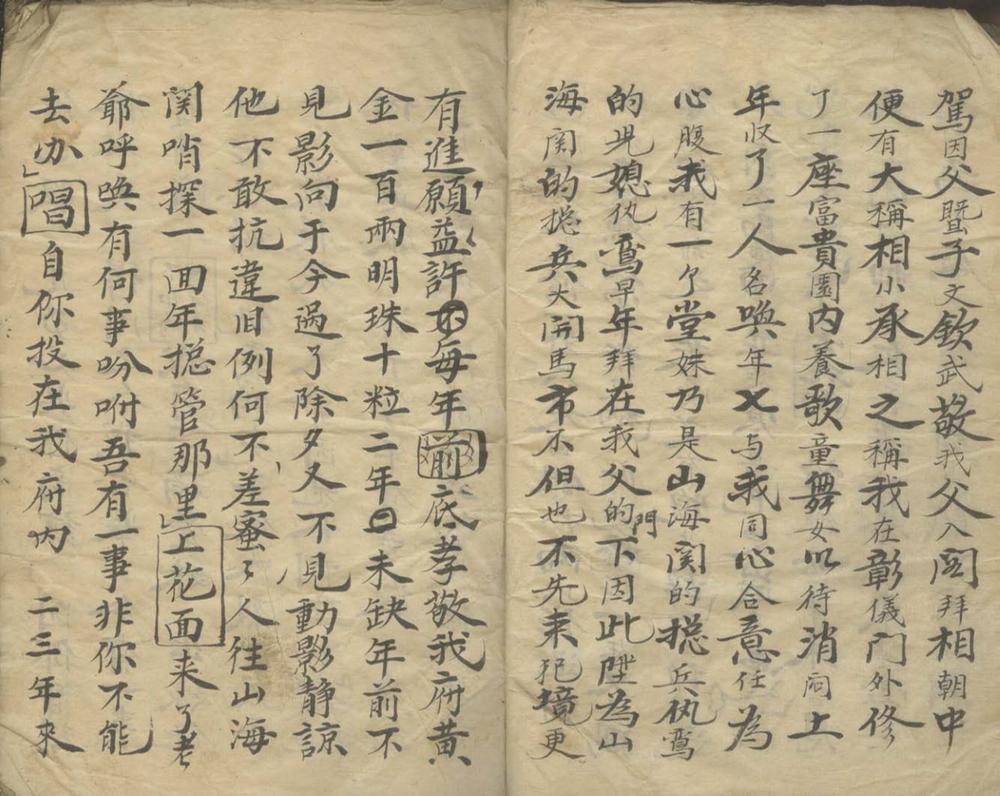 駕因父暨子文欽武敬我父入阁拜相朝中
便有大稱相小承相之稱我在彰儀门外修
了一座富貴園内養歌童舞女以待消闷上
年收了一人名唤年七与我同心合意任為
心腹我有一个堂妹乃是山海関的摠兵仇鸞
的児媳仇鸾早年拜在我父的門下因此陞為山
海関的摠兵大開馬市不但也不先来犯境更
有進願益許不每年前底孝敬我府黄
金一百兩明珠十粒二年口未缺年前不
見影向于今過了除夕又不見動影静諒
他不敢抗違旧例何不差蜜々人往山海
関哨探一回年摠管那里」上花面来了老
爺呼唤有何事吩咐吾有一事非你不能
去办」唱自你投在我府内 二三年来